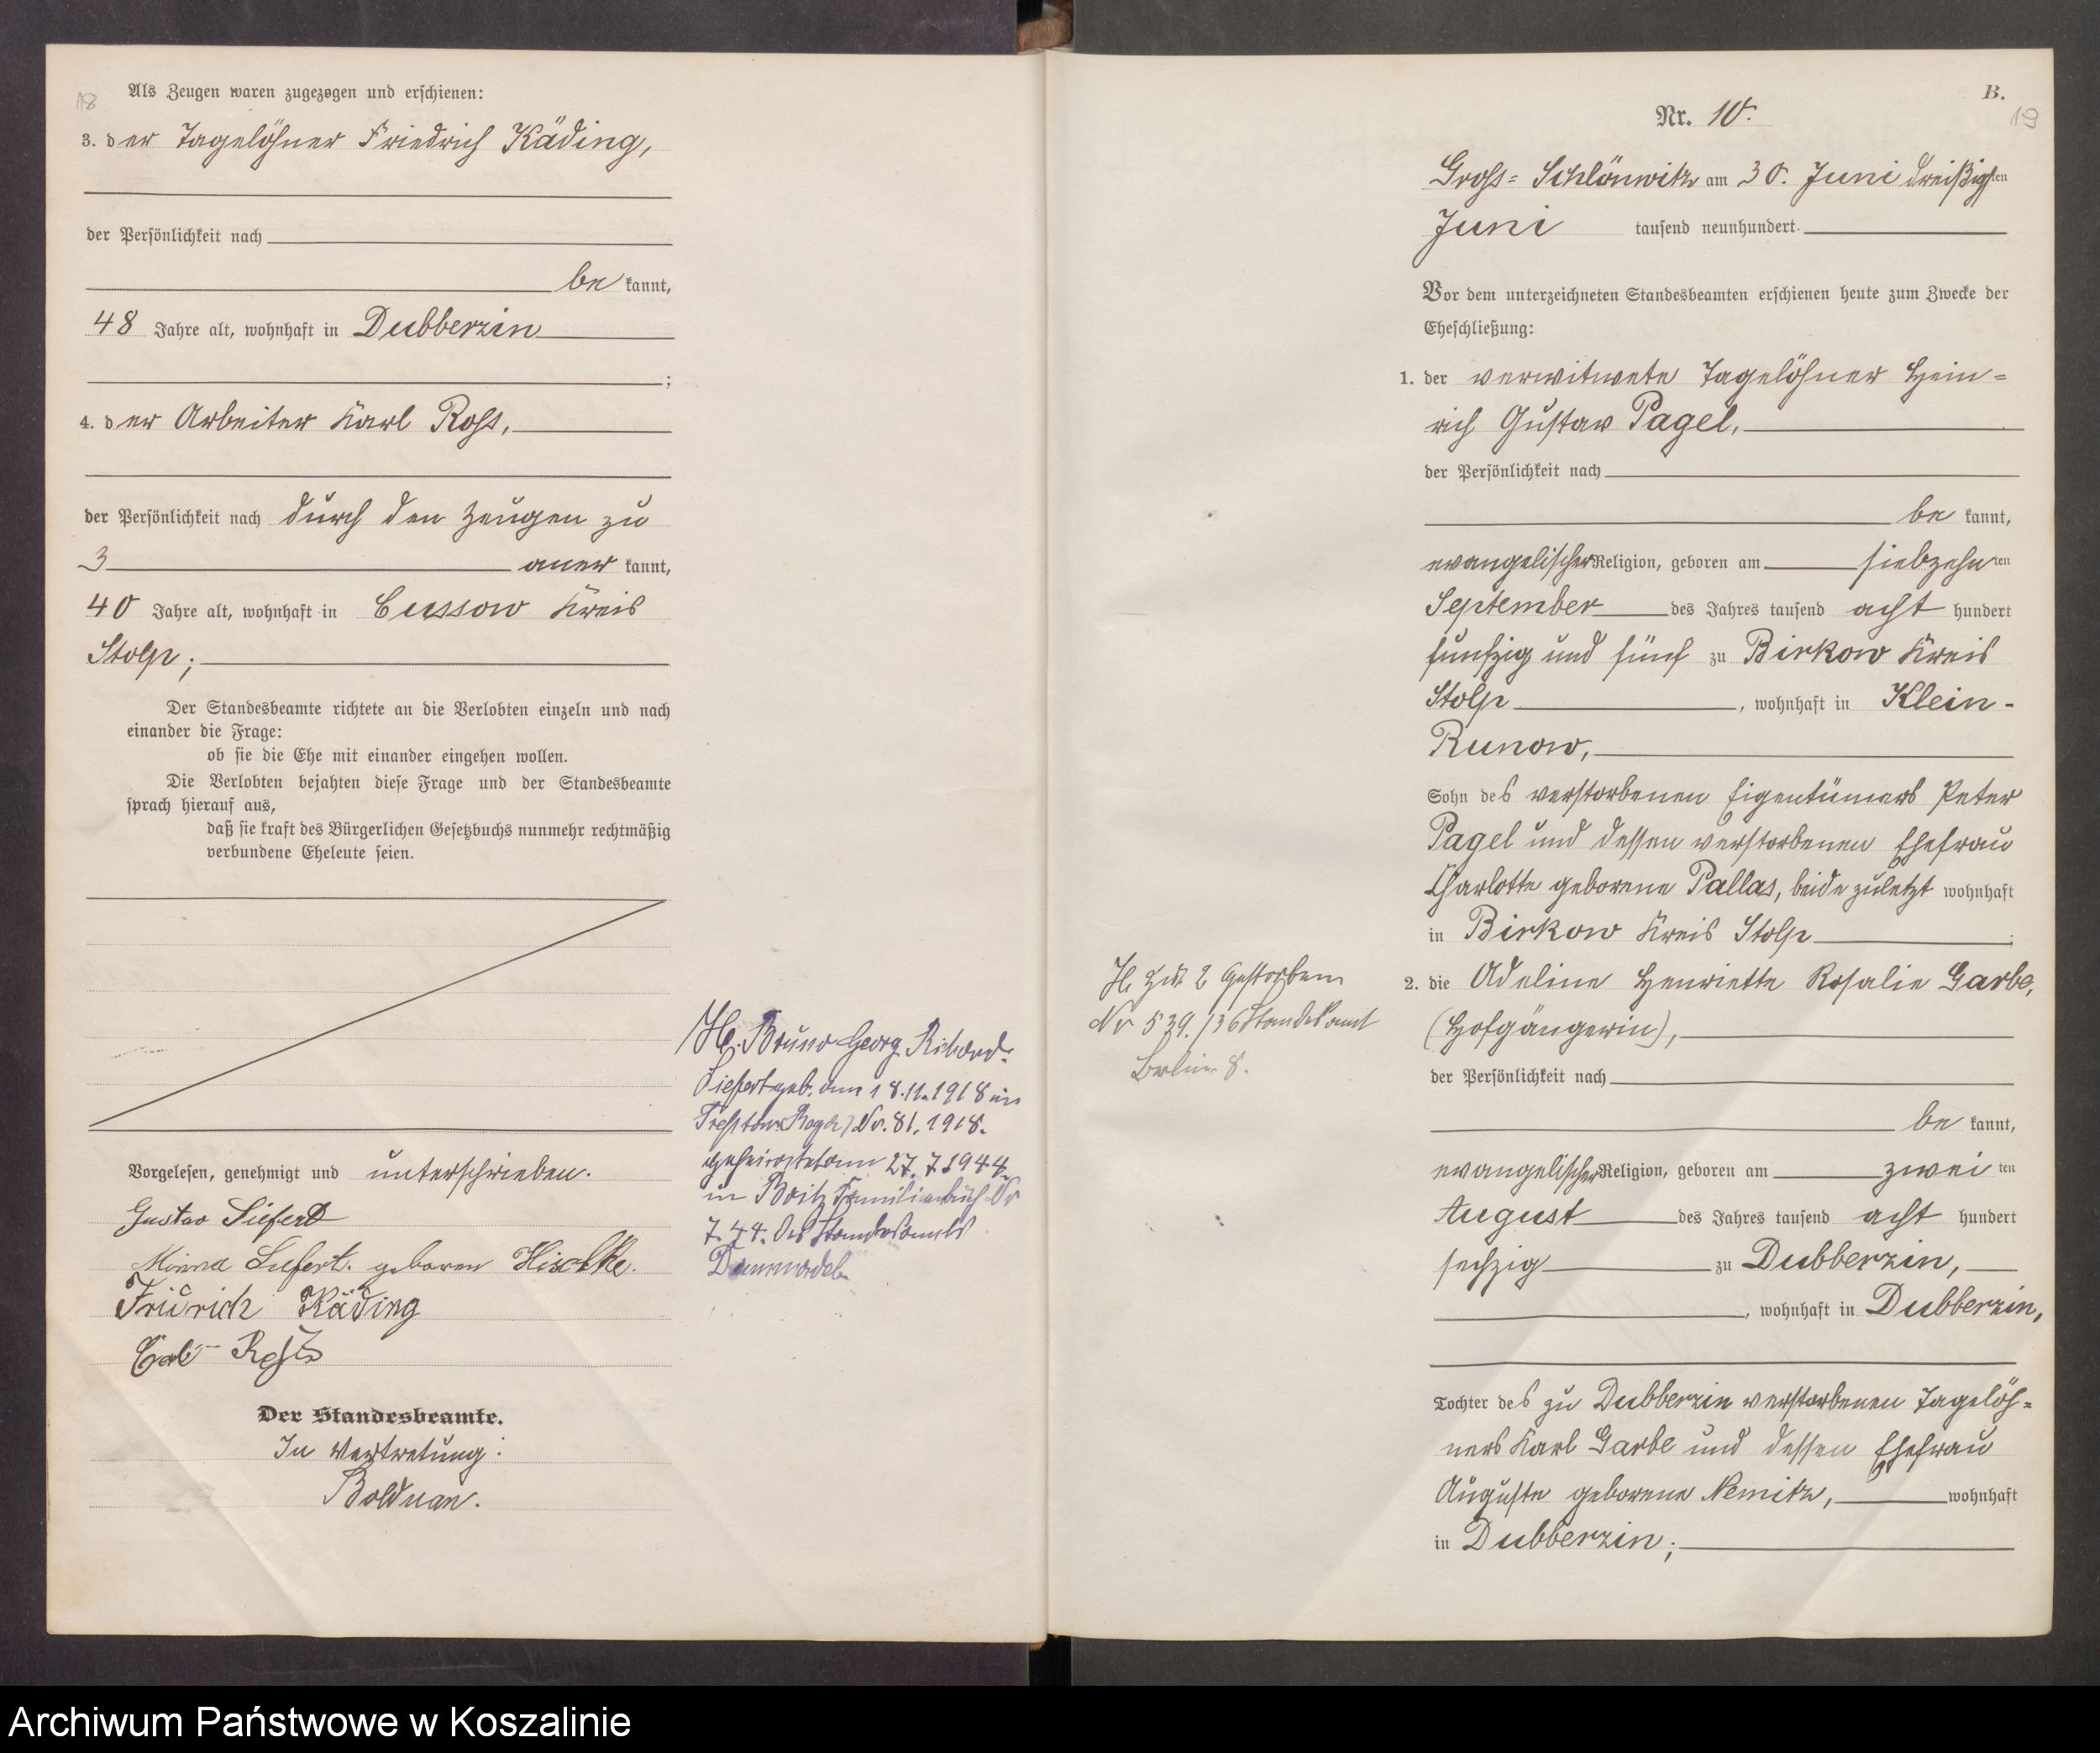 18
Als Zeugen waren zugezogen und erschienen:
3. der Tagelöhner Friedrich Käding,
der Persönlichkeit nach
be kannt,
48 Jahre alt, wohnhaft in Dubberzin
;
4. der Arbeiter Karl Ross,
der Persönlichkeit nach durch den Zeugen zu
3 aner kannt,
40 Jahre alt, wohnhaft in Cussow Kreis
Stolp;
Der Standesbeamte richtete an die Verlobten einzeln und nach
einander die Frage:
ob sie die Ehe mit einander eingehen wollen.
Die Verlobten bejahten diese Frage und der Standesbeamte
sprach hierauf aus,
daß sie kraft des Bürgerlichen Gesetzbuchs nunmehr rechtmäßig
verbundene Eheleute seien.
Vorgelesen, genehmigt und unterschrieben.
Gustav Siefert
Minna Siefert geboren Hischke.
Fridrich Käding
Ross
Der Standesbeamte.
In Vertretung:
Bolduan.
Bruno Georg Richard
Siefert geb. am 18.11.1918 in
Treptow Nr. 81, 1918.
geheiratet am 27.7.1944
in Britz Familienbuch Nr
7.44. des Standesamts
B.
19
Nr. 10.
Gross-Schlönwitz am 30. Juni dreißigsten
Juni tausend neunhundert.
Vor dem unterzeichneten Standesbeamten erschienen heute zum Zwecke der
Eheschließung:
1. der verwitwete Tagelöhner Hein-
rich Gustav Pagel,
der Persönlichkeit nach
be kannt,
evangelischer Religion, geboren am siebzehn ten
September des Jahres tausend acht hundert
fünfzig und fünf zu Birkow Kreis
Stolp, wohnhaft in Klein-
Runow,
Sohn des verstorbenen Eigentümers Peter
Pagel und dessen verstorbenen Ehefrau
Charlotte geborene Pallas, beide zuletzt wohnhaft
in Birkow Kreis Stolp;
2. die Adeline Henriette Rosalie Garbe,
(Hofgängerin),
der Persönlichkeit nach
be kannt,
evangelischer Religion, geboren am zwei ten
August des Jahres tausend acht hundert
sechzig zu Dubberzin,
, wohnhaft in Dubberzin,
Tochter des zu Dubberzin verstorbenen Tagelöh-
ners Karl Garbe und dessen Ehefrau
Auguste geborene Nemitz, wohnhaft
in Dubberzin;
H. zu 2 Gestorben
Nr 539./36 Standesamt
Berlin 8.
Archiwum Państwowe w Koszalinie